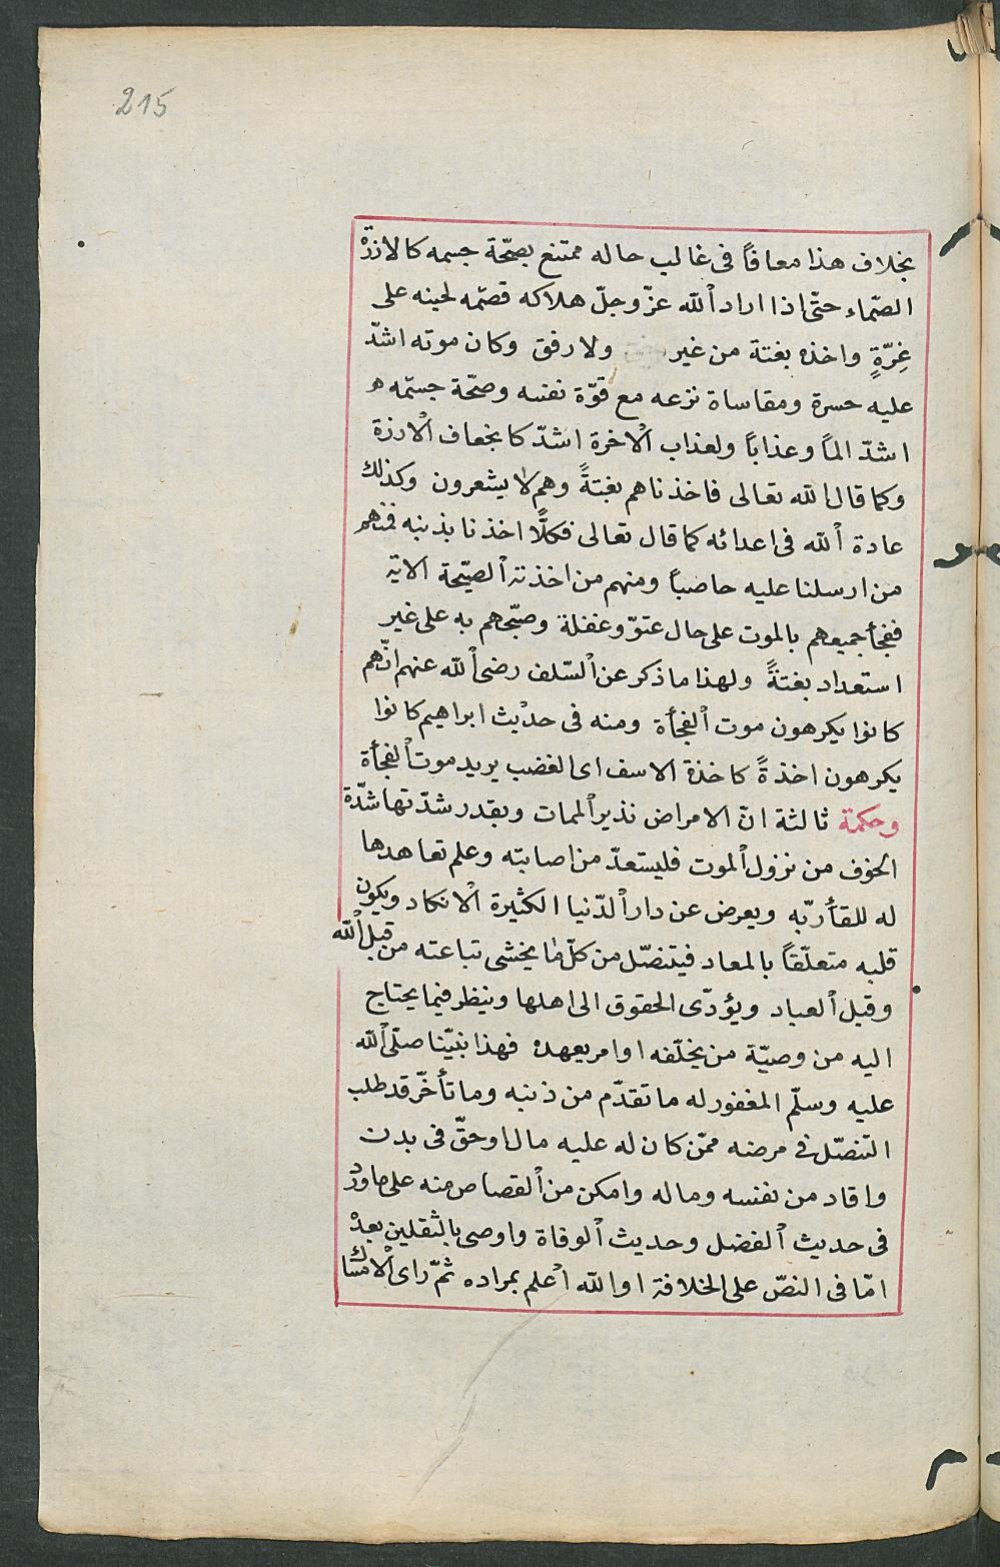 215
بخلاف هذا معافًا فى غالب حاله ممتنع بصحّة جسمه كالارزة
الصّماء حتّى اذا اراد الله عزّ وجلّ هلاكه قصّمه لحينه على
غِرّةٍ واخذه بغتة من غير ولا رفق وكان موته اشدّ
عليه حسرة ومقاساة نزعه مع قوّة نفسه وصحّة جسمّه
اشدّ الماً وعذاباً ولعذاب الاخرة اشدّ كانجعاف الارزة
وكما قال الله تعالى فاخذناهم بغتةً وهم لا يشعرون وكذلك
عادة الله فى اعدائه كما قال تعالى فكلًّا اخذنا بذنبه فمنهم
من ارسلنا عليه حاصباً ومنهم من اخذته الصيّحة الاية
ففجأ جميعهم بالموت على حال عتوّ وغفلة وصبّحهم به على غير
استعداد بغتةً ولهذا ما ذكر عن السّلف رضى الله عنهم انّهم
كانوا يكرهون موت الفجأة ومنه فى حديث ابراهيم كانوا
يكرهون اخذةً كاخذة الاسف اى الغضب يريد موت الفجأة
وحكمة ثالثة انّ الامراض نذير الممات وبقدر شدّتها شدّة
الخوف من نزول الموت فليستعدّ من اصابته وعلم تعاهدها
له للقأ ربّه ويعرض عن دار الدّنيا الكثيرة الانكاد ويكون
قلبه متعلّقاً بالمعاد فيتنصّل من كلّ ما يخشى تباعته من قبل الله
وقبل العباد ويؤدّى الحقوق الى اهلها وينظر فيما يحتاج
اليه من وصيّة من يخلّفه او امر يعهده فهذا نبيّنا صلّى الله
عليه وسلّم المغفور له ما تقدّم من ذنبه وما تأخّر قد طلب
التنصّل فى مرضه ممّن كان له عليه مال او حقّ فى بدن
واقاد من نفسه وماله وامكن من القصاص منه على ما ورد
فى حديث الفضل وحديث الوفاة واوصى بالثقلين بعده
امّا فى النصّ على الخلافة او الله اعلم بمراده ثمّ راى الامساك